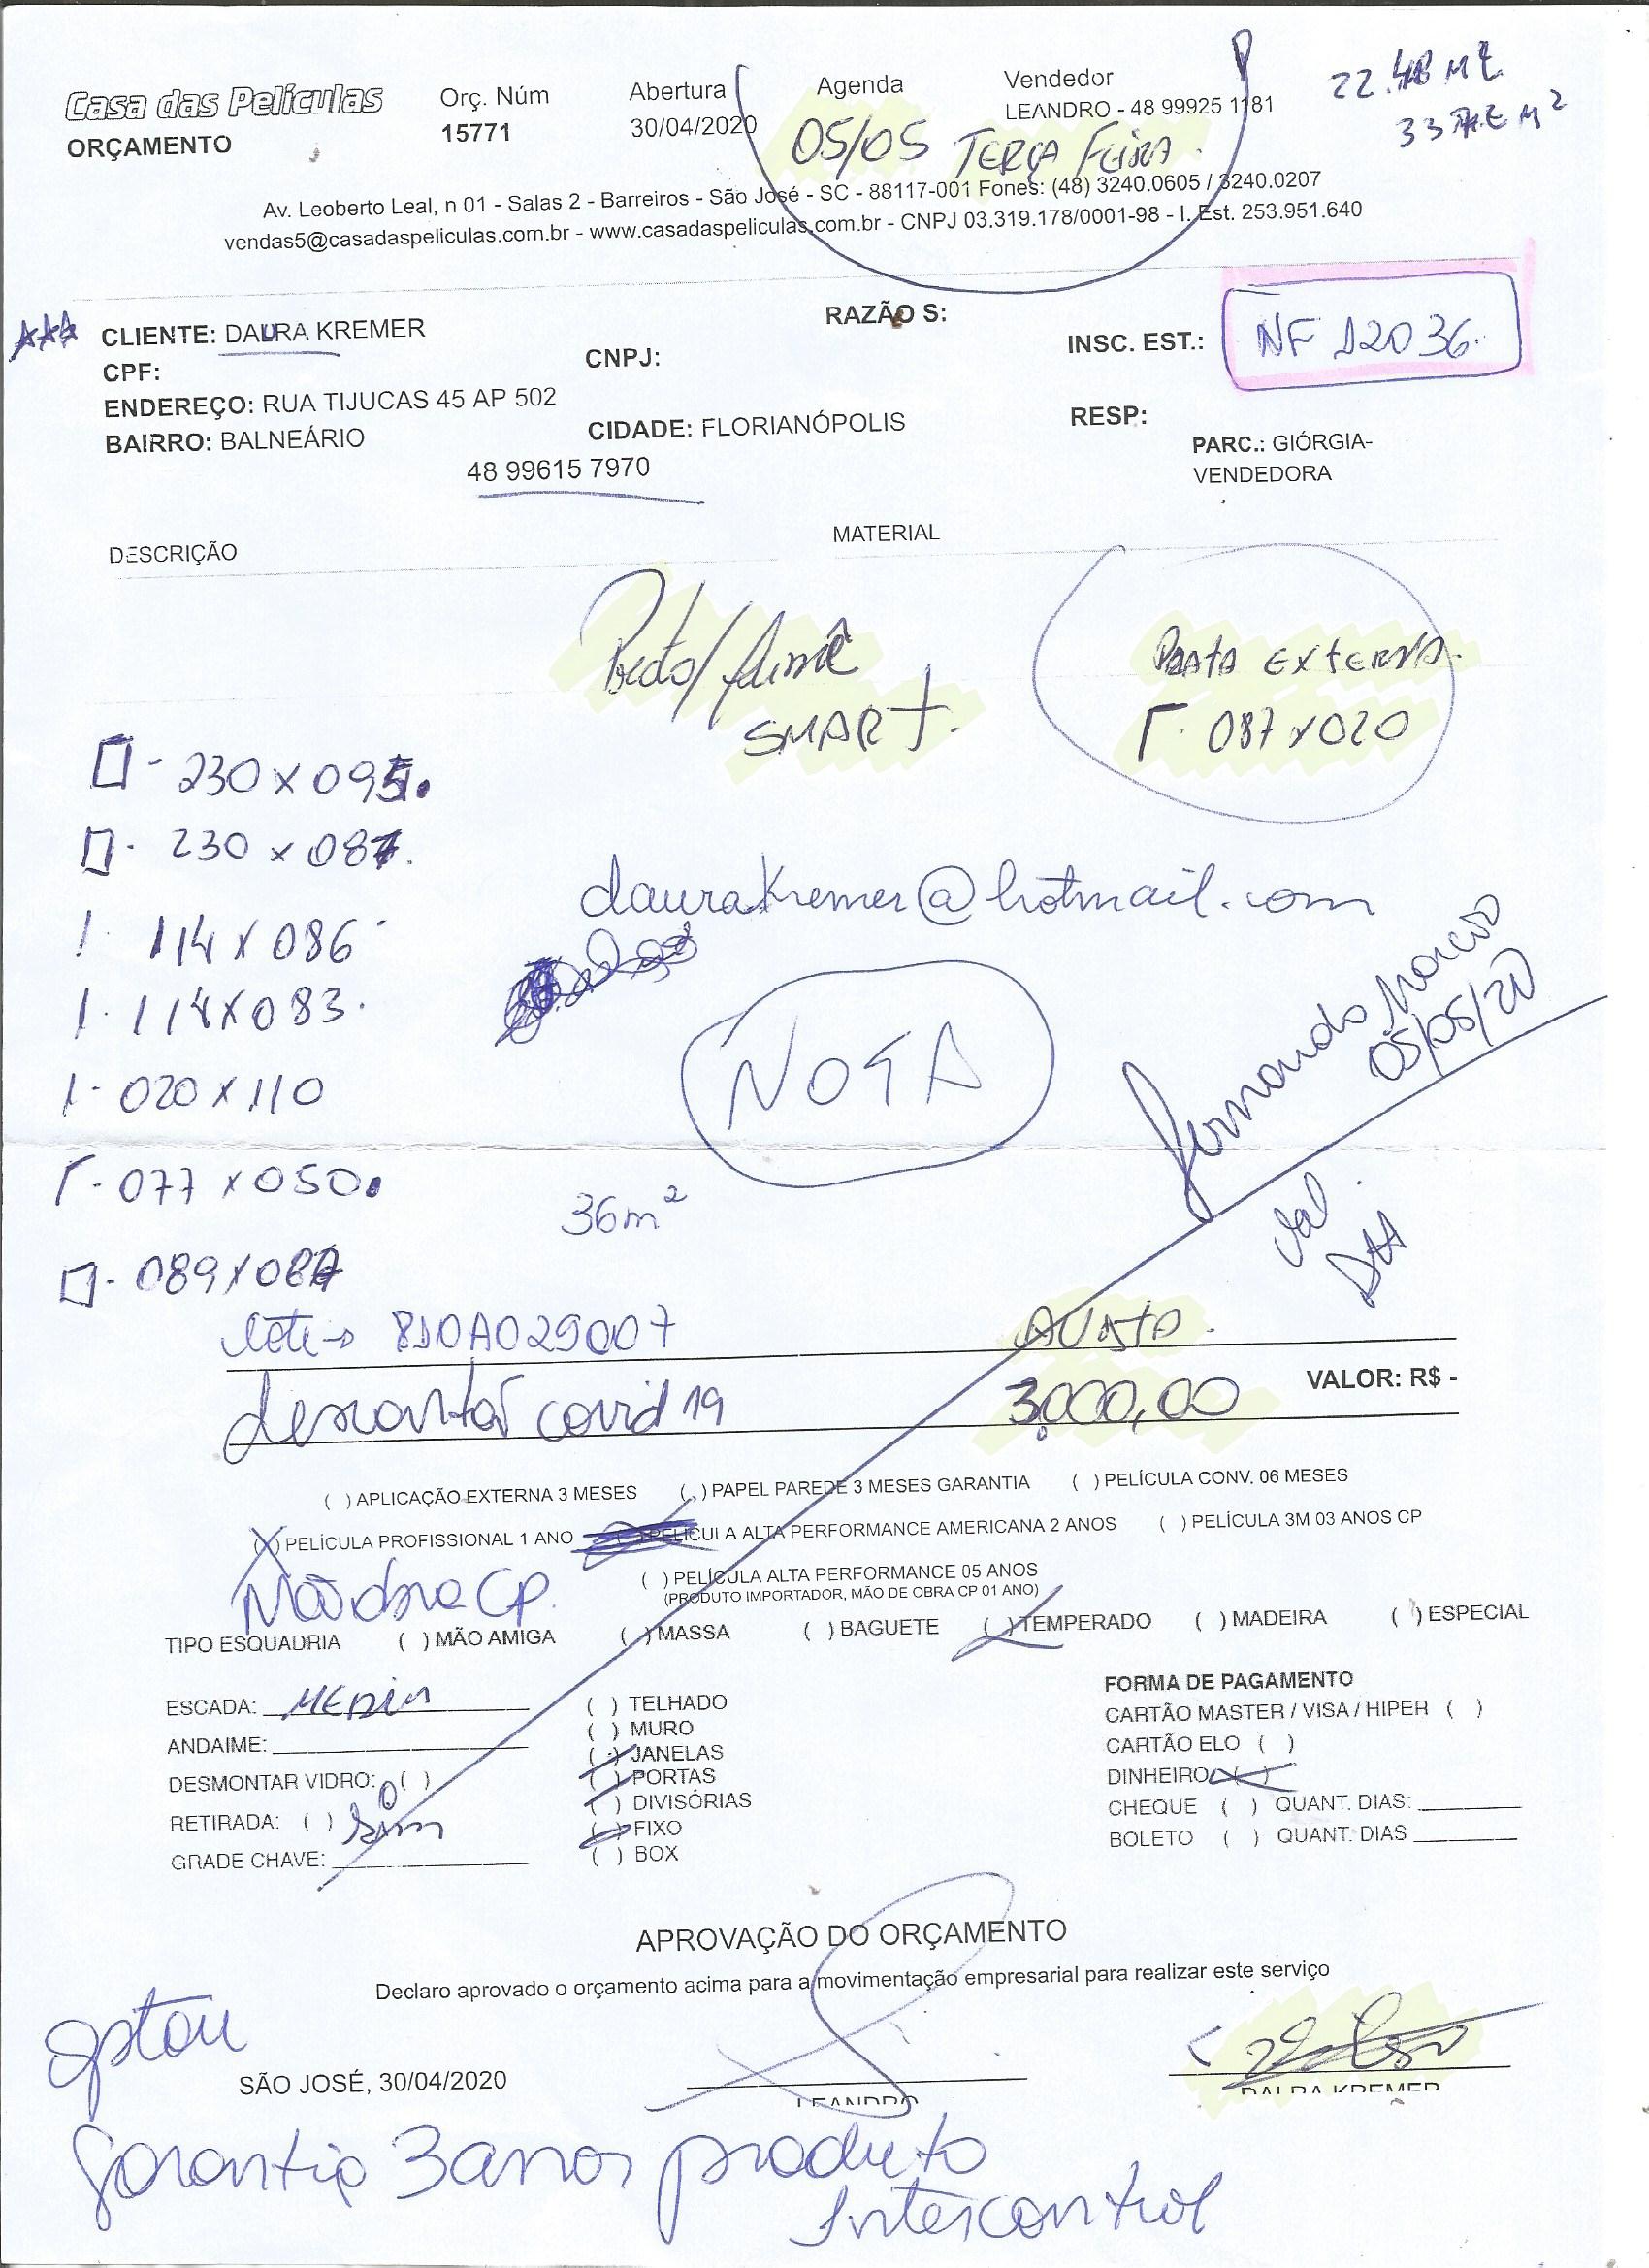 Casa das Películas
ORÇAMENTO
Orç. Núm
15771
Abertura
30/04/2020
Agenda
05/05 TERÇA FEIRA.
Vendedor
LEANDRO - 48 99925 1181
22.48 M
33 M²
Av. Leoberto Leal, n 01 - Salas 2 - Barreiros - São José - SC - 88117-001 Fones: (48) 3240.0605 / 3240.0207
vendas5@casadaspeliculas.com.br - www.casadaspeliculas.com.br - CNPJ 03.319.178/0001-98 - I. Est. 253.951.640
CLIENTE: DAURA KREMER
RAZÃO S:
CPF:
CNPJ:
INSC. EST.:
NF 12036.
ENDEREÇO: RUA TIJUCAS 45 AP 502
BAIRRO: BALNEÁRIO
CIDADE: FLORIANÓPOLIS
RESP:
48 99615 7970
PARC.: GIÓRGIA-
VENDEDORA
DESCRIÇÃO
MATERIAL
Preto/fumê
SMART.
EXTERNA.
087x020
230 x 095.
230 x 087.
114 x 086
114 x 083.
020 x 110
077 x 050.
089 x 087
daurakremer@hotmail.com
NOTA
Fernando
05/05/20
36m²
lote → 810A029007
AVISTA.
descontar covid 19
3.000,00
VALOR: R$ -
( ) APLICAÇÃO EXTERNA 3 MESES ( ) PAPEL PAREDE 3 MESES GARANTIA ( ) PELÍCULA CONV. 06 MESES
(X) PELÍCULA PROFISSIONAL 1 ANO ( ) PELÍCULA ALTA PERFORMANCE AMERICANA 2 ANOS ( ) PELÍCULA 3M 03 ANOS CP
( ) PELÍCULA ALTA PERFORMANCE 05 ANOS
(PRODUTO IMPORTADOR, MÃO DE OBRA CP 01 ANO)
CP.
TIPO ESQUADRIA ( ) MÃO AMIGA ( ) MASSA ( ) BAGUETE ( ) TEMPERADO ( ) MADEIRA ( ) ESPECIAL
ESCADA: MEDIA
ANDAIME:
DESMONTAR VIDRO: ( )
RETIRADA: ( ) Sim
GRADE CHAVE:
( ) TELHADO
( ) MURO
( ) JANELAS
( ) PORTAS
( ) DIVISÓRIAS
( ) FIXO
( ) BOX
FORMA DE PAGAMENTO
CARTÃO MASTER / VISA / HIPER ( )
CARTÃO ELO ( )
DINHEIRO ( )
CHEQUE ( ) QUANT. DIAS:
BOLETO ( ) QUANT. DIAS
APROVAÇÃO DO ORÇAMENTO
Declaro aprovado o orçamento acima para a movimentação empresarial para realizar este serviço
optou
SÃO JOSÉ, 30/04/2020
LEANDRO
DAURA KREMER
Garantia 3 anos produto
Intercontrol